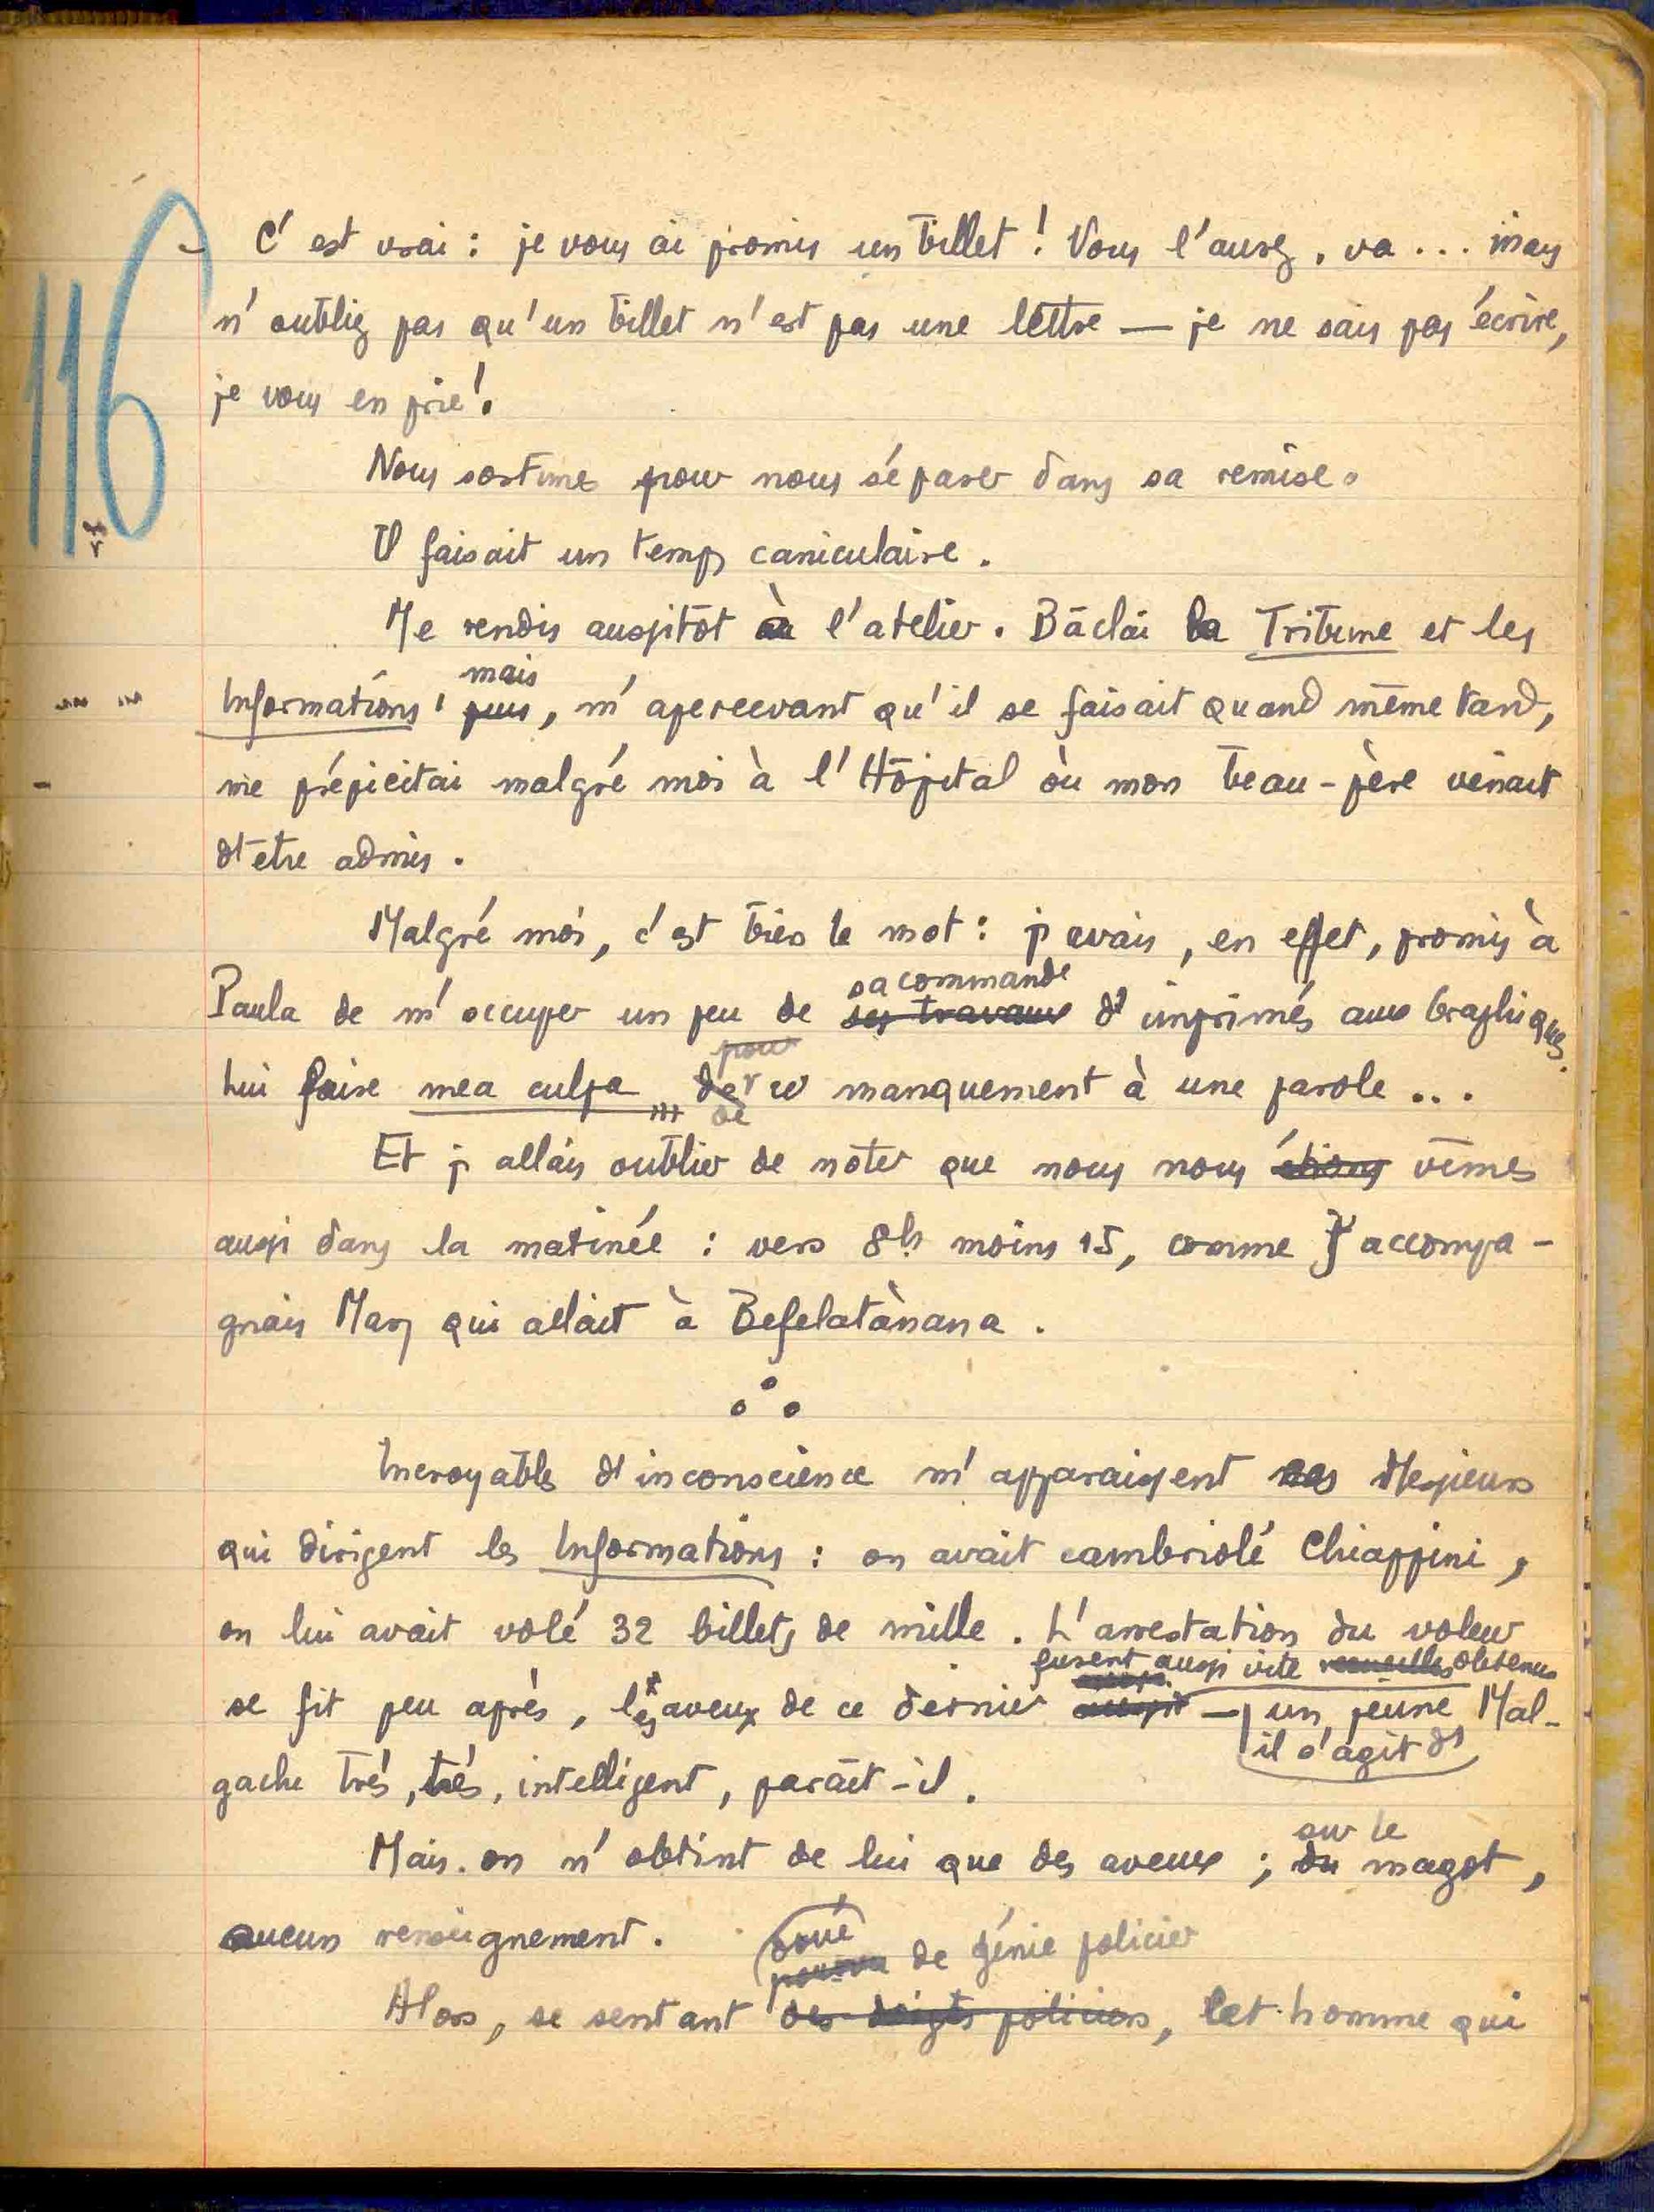 116
- C'est vrai : je vous ai promis un billet ! Vous l'aurez, va ... mais
n'oubliez pas qu'un billet n'est pas une lettre — je ne sais pas écrire,
je vous en prie !
Nous sortîmes pour nous séparer dans sa remise.
Il faisait un temps caniculaire.
Me rendis aussitôt à l'atelier. Bâclai la Tribune et les
mais
Informations, puis, m'apercevant qu'il se faisait quand même tard,
me précipitai malgré moi à l'Hôpital où mon beau-père venait
d'être admis.
Malgré moi, c'est bien le mot : j'avais, en effet, promis à
sa commande
Paula de m'occuper un peu de ses travaux d'imprimés aux Graphiques.
pour
Lui faire mea culpa de ce manquement à une parole ...
de
Et j'allais oublier de noter que nous nous étions vîmes
aussi dans la matinée : vers 8h moins 15, comme j'accompa-
gnais Mary qui allait à Befelatànana.
Incroyable d'inconscience m'apparaissent ces Messieurs
qui dirigent les Informations : on avait cambriolé Chiappini,
on lui avait volé 32 billets de mille. L'arrestation du voleur
furent aussi vite recueillis obtenus
se fit peu après, les aveux de ce dernier — un jeune Mal-
il s'agit d'
gache très, très, intelligent, paraît-il.
sur le
Mais on n'obtint de lui que des aveux ; du magot,
aucun renseignement.
doué
pourvu de génie policier
Alors, se sentant des doigts policiers, cet homme qui